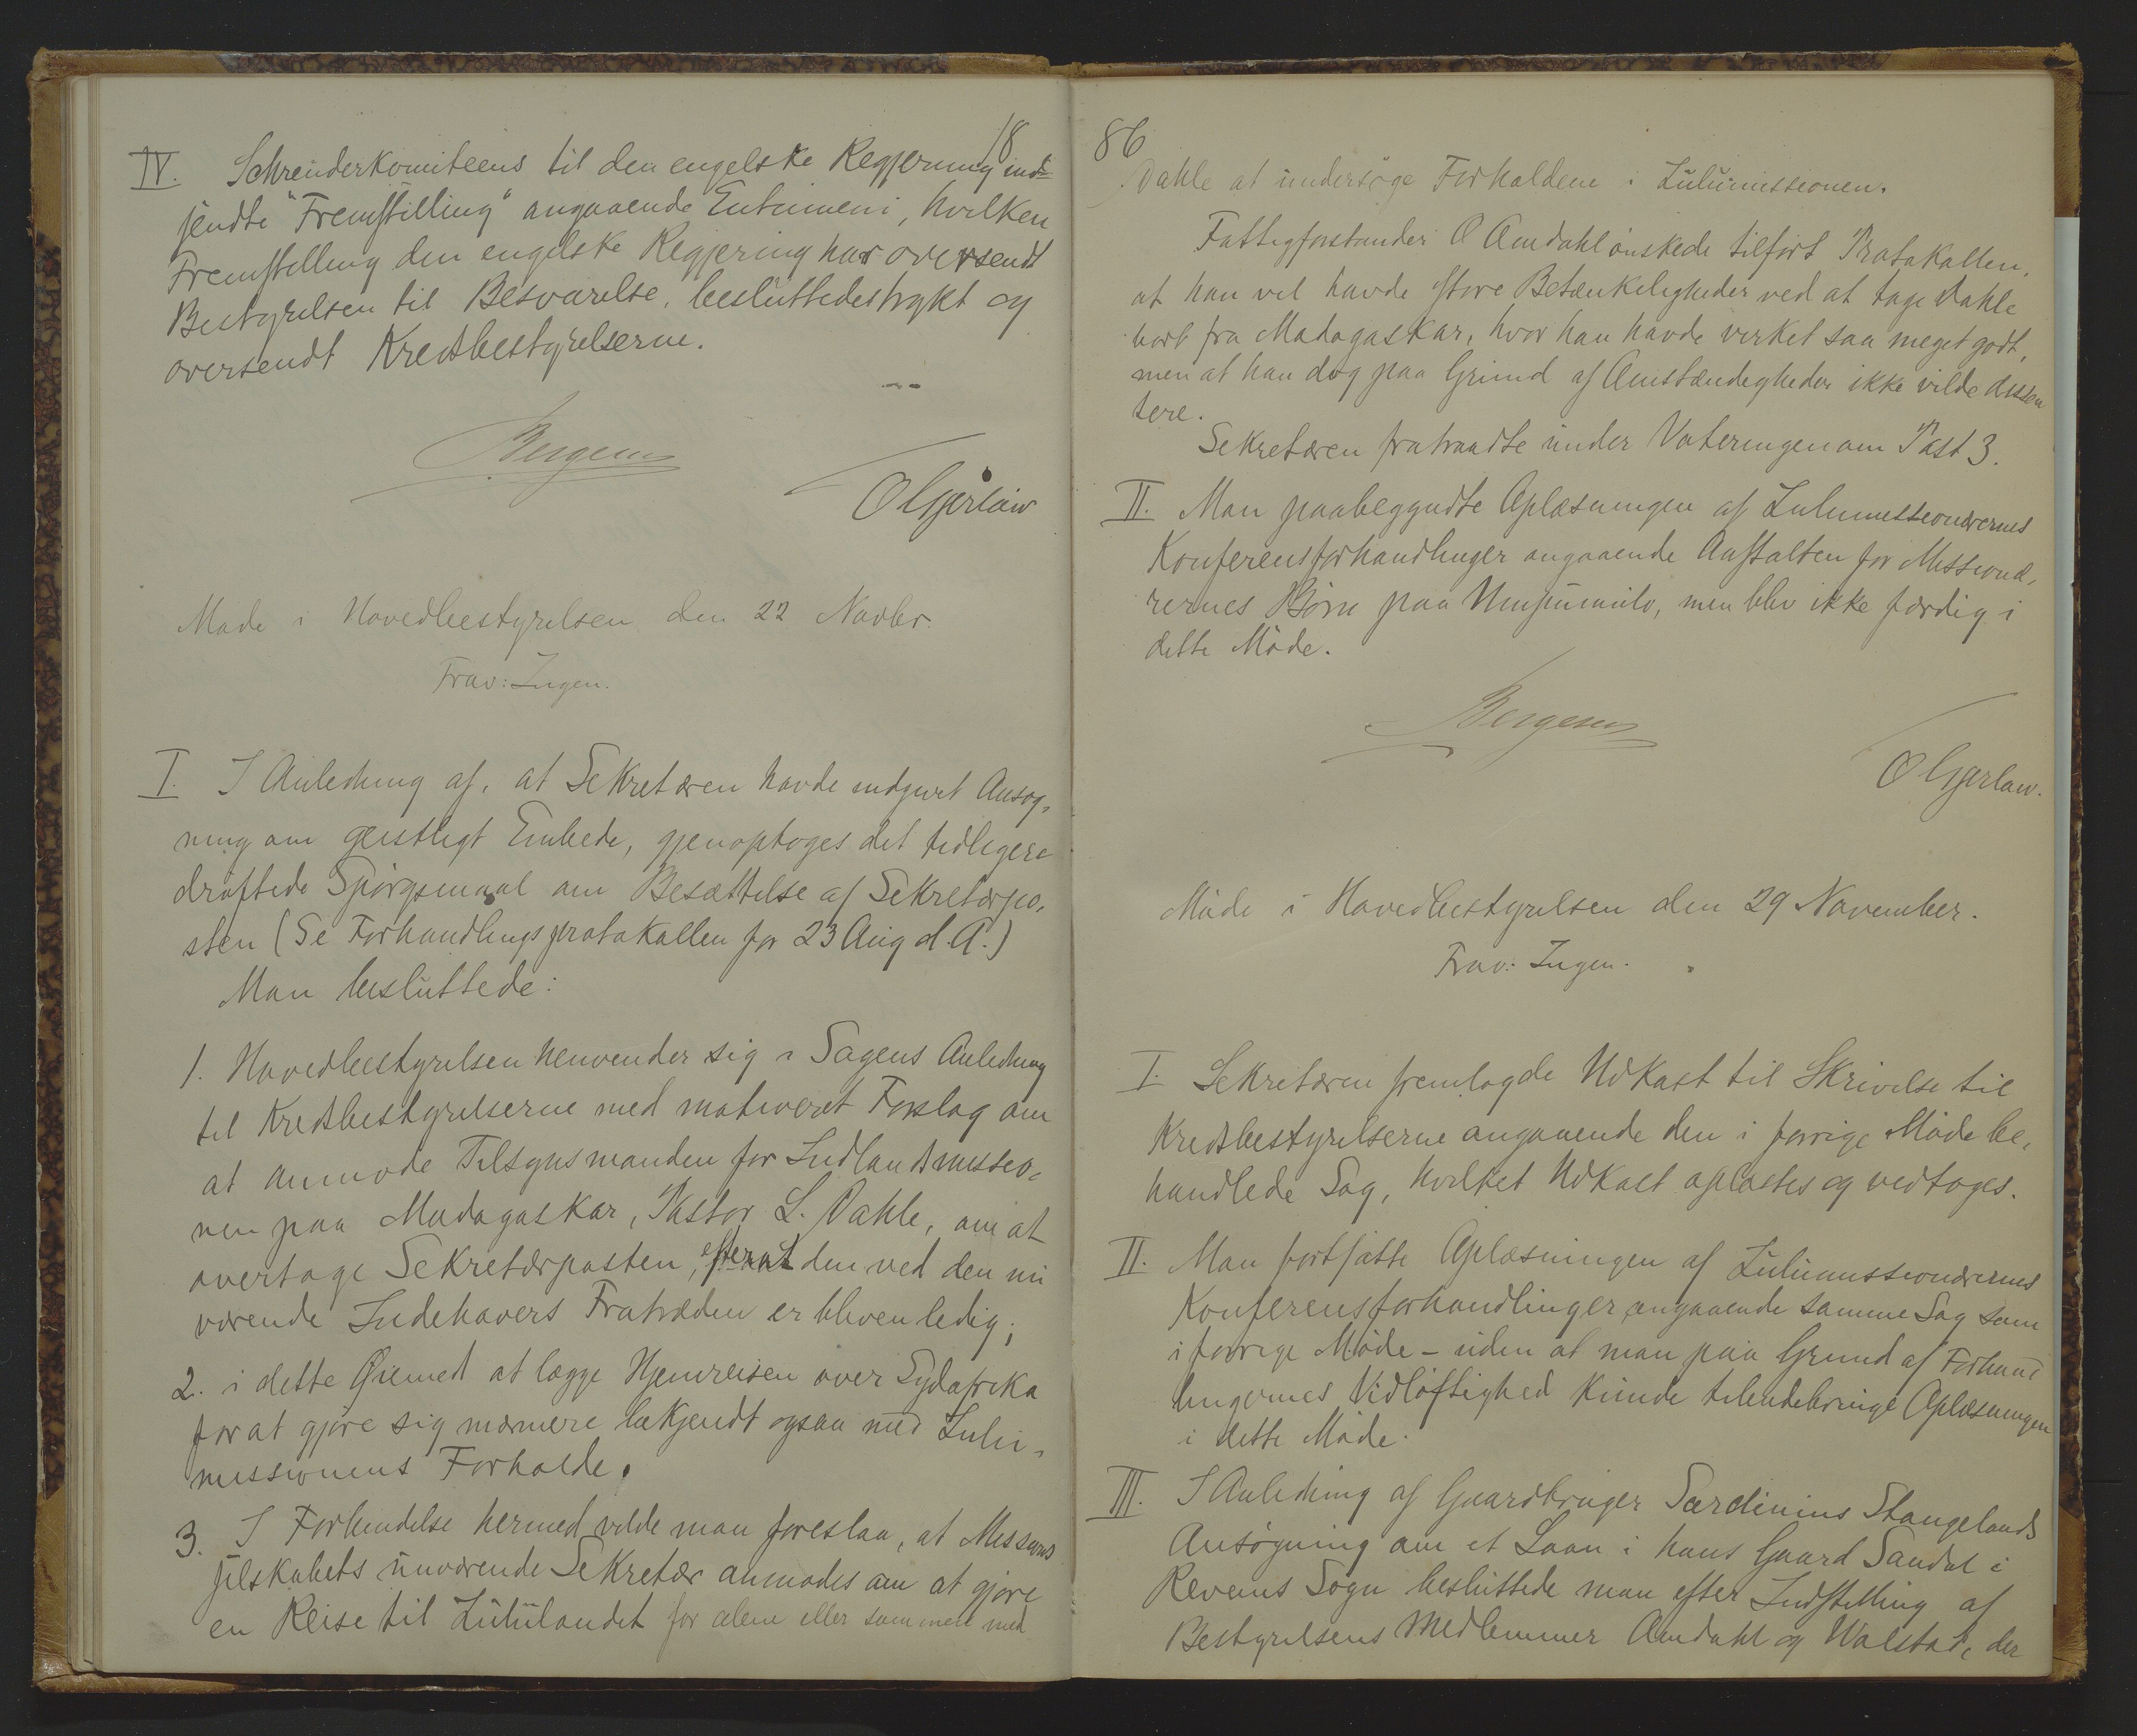 18
IV. Schreuderkomiteens til den engelske Regjering ind-
sendte "Fremstilling" angaaende Entumeni, hvilken
Fremstilling den engelske Regjering har oversendt
Bestyrelsen til Besvarelse, besluttedes trykt og
oversendt Kredsbestyrelserne.
Bergesen
O Gjerløw
Møde i Hovedbestyrelsen den 22 Novbr.
Frav: Ingen.
I. I Anledning af, at Sekretæren havde indgivet Ansøg,
ning om geistligt Embede, gjenoptoges det tidligere
drøftede Spørgsmaal om Besættelse af Sekretærpo,
sten (Se Forhandlingsprotokollen for 23 Aug d. A.)
Man besluttede:
1. Hovedbestyrelsen henvender sig i Sagens Anledning
til Kredsbestyrelserne med motiveret Forslag om
at anmode Tilsynsmanden for Indlandsmissio,
nen paa Madagaskar, Pastor L. Dahle, om at
overtage Sekretærposten, efterat den ved den nu
værende Indehavers Fratræden er bleven ledig;
2. i dette Øiemed at lægge Hjemreisen over Sydafrika
for at gjøre sig nærmere bekjendt ogsaa med Zulu,
missionens Forholde.
3. I Forbindelse hermed vilde man foreslaa, at Missions
selskabets nuværende Sekretær anmodes om at gjøre
en Reise til Zululandet for alene eller sammen med
86
Dahle at undersøge Forholdene i Zulumissionen.
Fattigforstander O Amdahl ønskede tilført Protokollen,
at han vel havde store Betænkeligheder ved at tage Dahle
bort fra Madagaskar, hvor han havde virket saa meget godt,
men at han dog paa Grund af Omstændigheder ikke vilde dissen
tere.
Sekretæren fratraadte under Voteringen om Post 3.
II. Man paabegyndte Oplæsningen af Zulumissionærernes
Konferensforhandlinger angaaende Anstalten for Missionæ,
rernes Børn paa Umpumulo, men blev ikke færdig i
dette Møde.
Bergesen
O Gjerløw.
Møde i Hovedbestyrelsen den 29 November.
Frav: Ingen.
I. Sekretæren fremlagde Udkast til Skrivelse til
Kredsbestyrelserne angaaende den i forrige Møde be,
handlede Sag, hvilket Udkast oplæstes og vedtoges.
II. Man fortsatte Oplæsningen af Zulumissionærernes
Konferensforhandlinger angaaende samme Sag som
i forrige Møde - uden at man paa Grund af Forhand
lingernes Vidløftighed kunde tilendebringe Oplæsningen
i dette Møde.
III. I Anledning af Gaardbruger Sardinius Stangelands
Ansøgning om et Laan i hans Gaard Sandal i
Revems Sogn besluttede man efter Indstilling af
Bestyrelsens Medlemmer Amdahl og Walstad, der